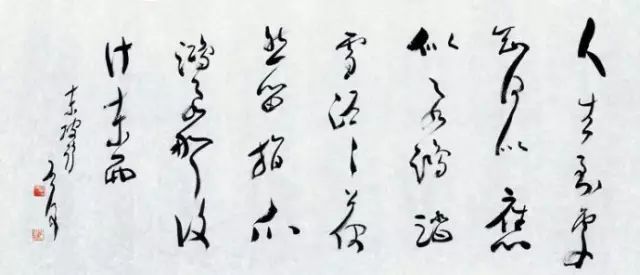 人生到處
知何似應
似飛鴻踏
雪泥〻上偶
然留指爪
鴻飛那復
計東西
東坡